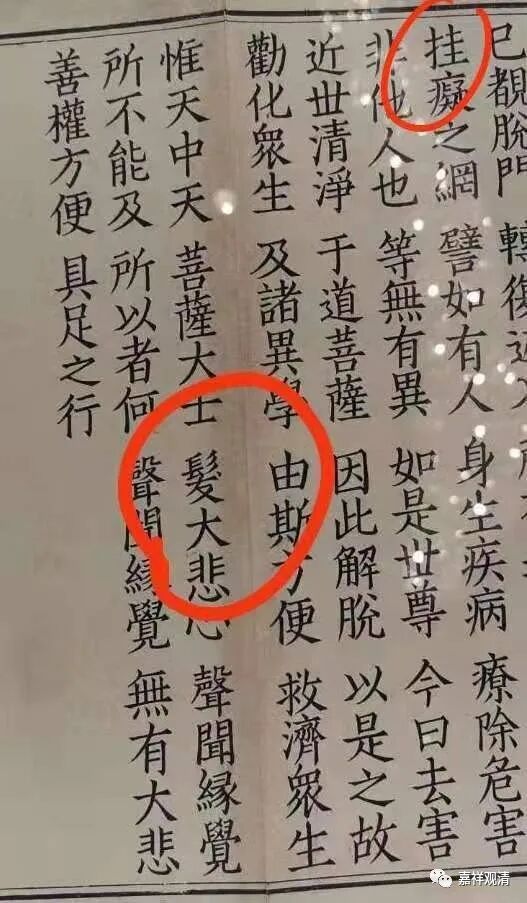 巳覩脫門 轉復
挂癡之網 譬如有人 身生疾病 療除危害
非他人也 等無有異 如是世尊 今曰去害
近世清淨 于道菩薩 因此解脫 以是之故
勸化衆生 及諸異學 由斯方便 救濟衆生
惟天中天 菩薩大士 髮大悲心 聲聞縁覺
所不能及 所以者何 聲聞縁覺 無有大悲
善權方便 具足之行
嘉祥观清